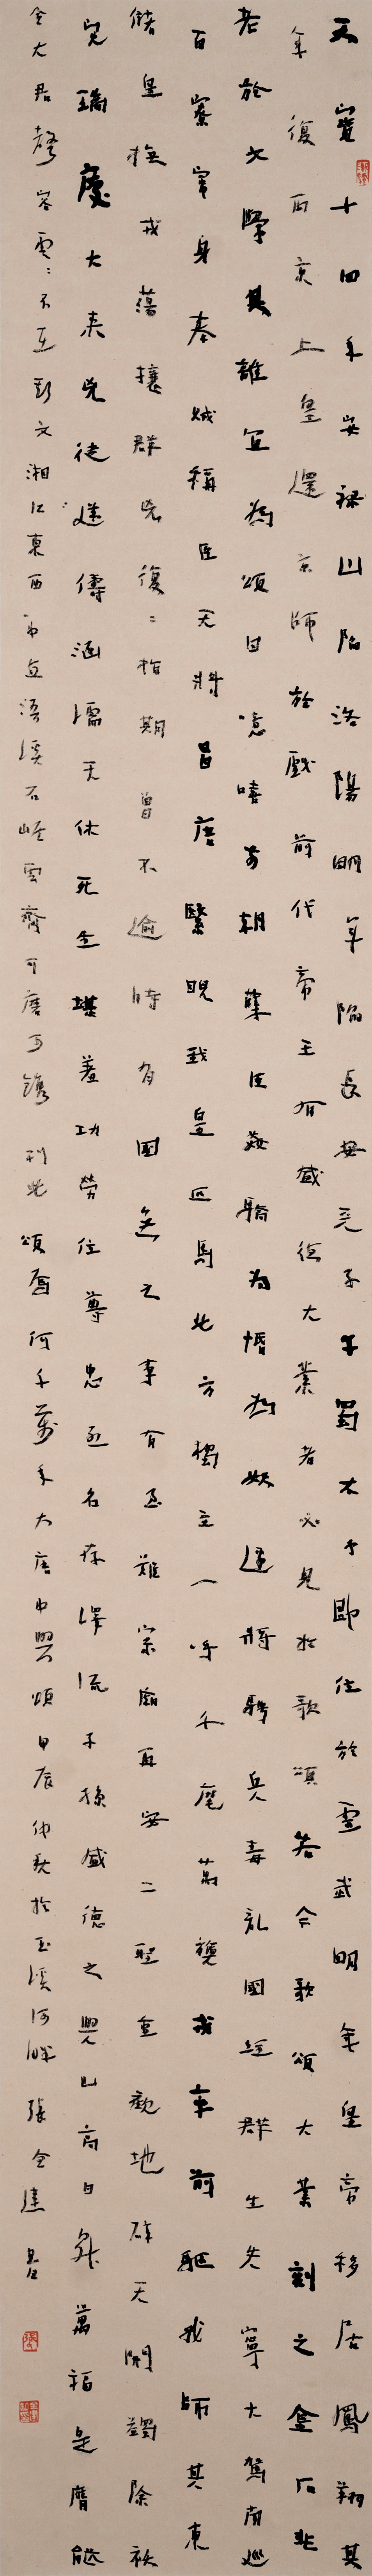 天寶十四年安祿山陷洛陽明年陷長安天子幸蜀太子即位於靈武明年皇帝移居鳳翔其
年復兩京上皇還京師於戲前代帝王有盛德大業者必見於歌頌若今歌頌大業刻之金石非
老於文學其誰宜為頌曰噫嘻前朝孽臣姦驕為惛為妖邊將騁兵毒亂國經群生失寧大駕南巡
百寮竄身奉賊稱臣天將昌唐繄睨我皇匹馬北方獨立一呼千麾萬旟戎卒前驅我師其東
儲皇撫戎蕩攘群兇復〻指期曾不逾時有國無之事有至難宗廟再安二聖重歡地辟天開蠲除祅
災瑞慶大來兇徒逆儔涵濡天休死生堪羞功勞位尊忠烈名存澤流子孫盛德之興山高日昇萬福是膺能
令大君聲容雲〻不在斯文湘江東西中直浯溪石崖雲齊可磨可鐫刊此頌焉何千萬年大唐中興頌甲辰仲秋於玉溪河畔張全建書